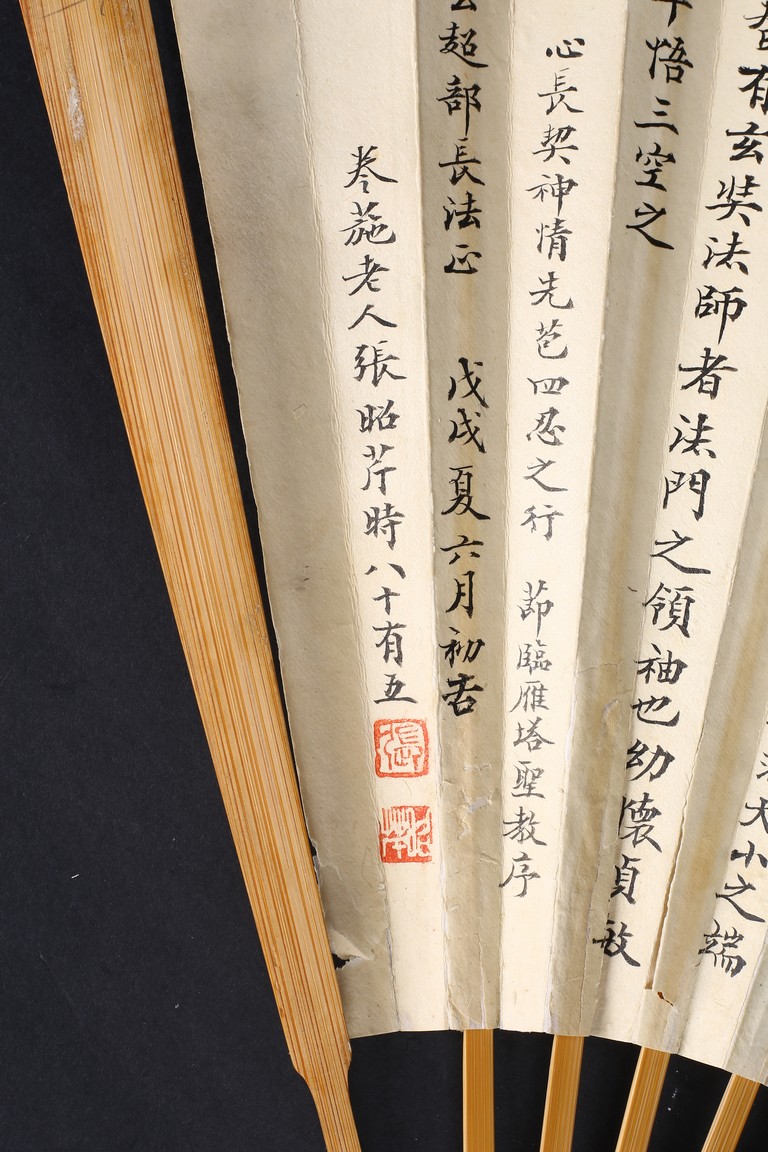 大小之端
有玄奘法師者法門之領袖也幼懷貞敏
悟三空之
心長契神情先苞四忍之行 節臨雁塔聖教序
超部長法正 戊戌夏六月初吉
卷葹老人張昭芹時八十有五
張
昭芹